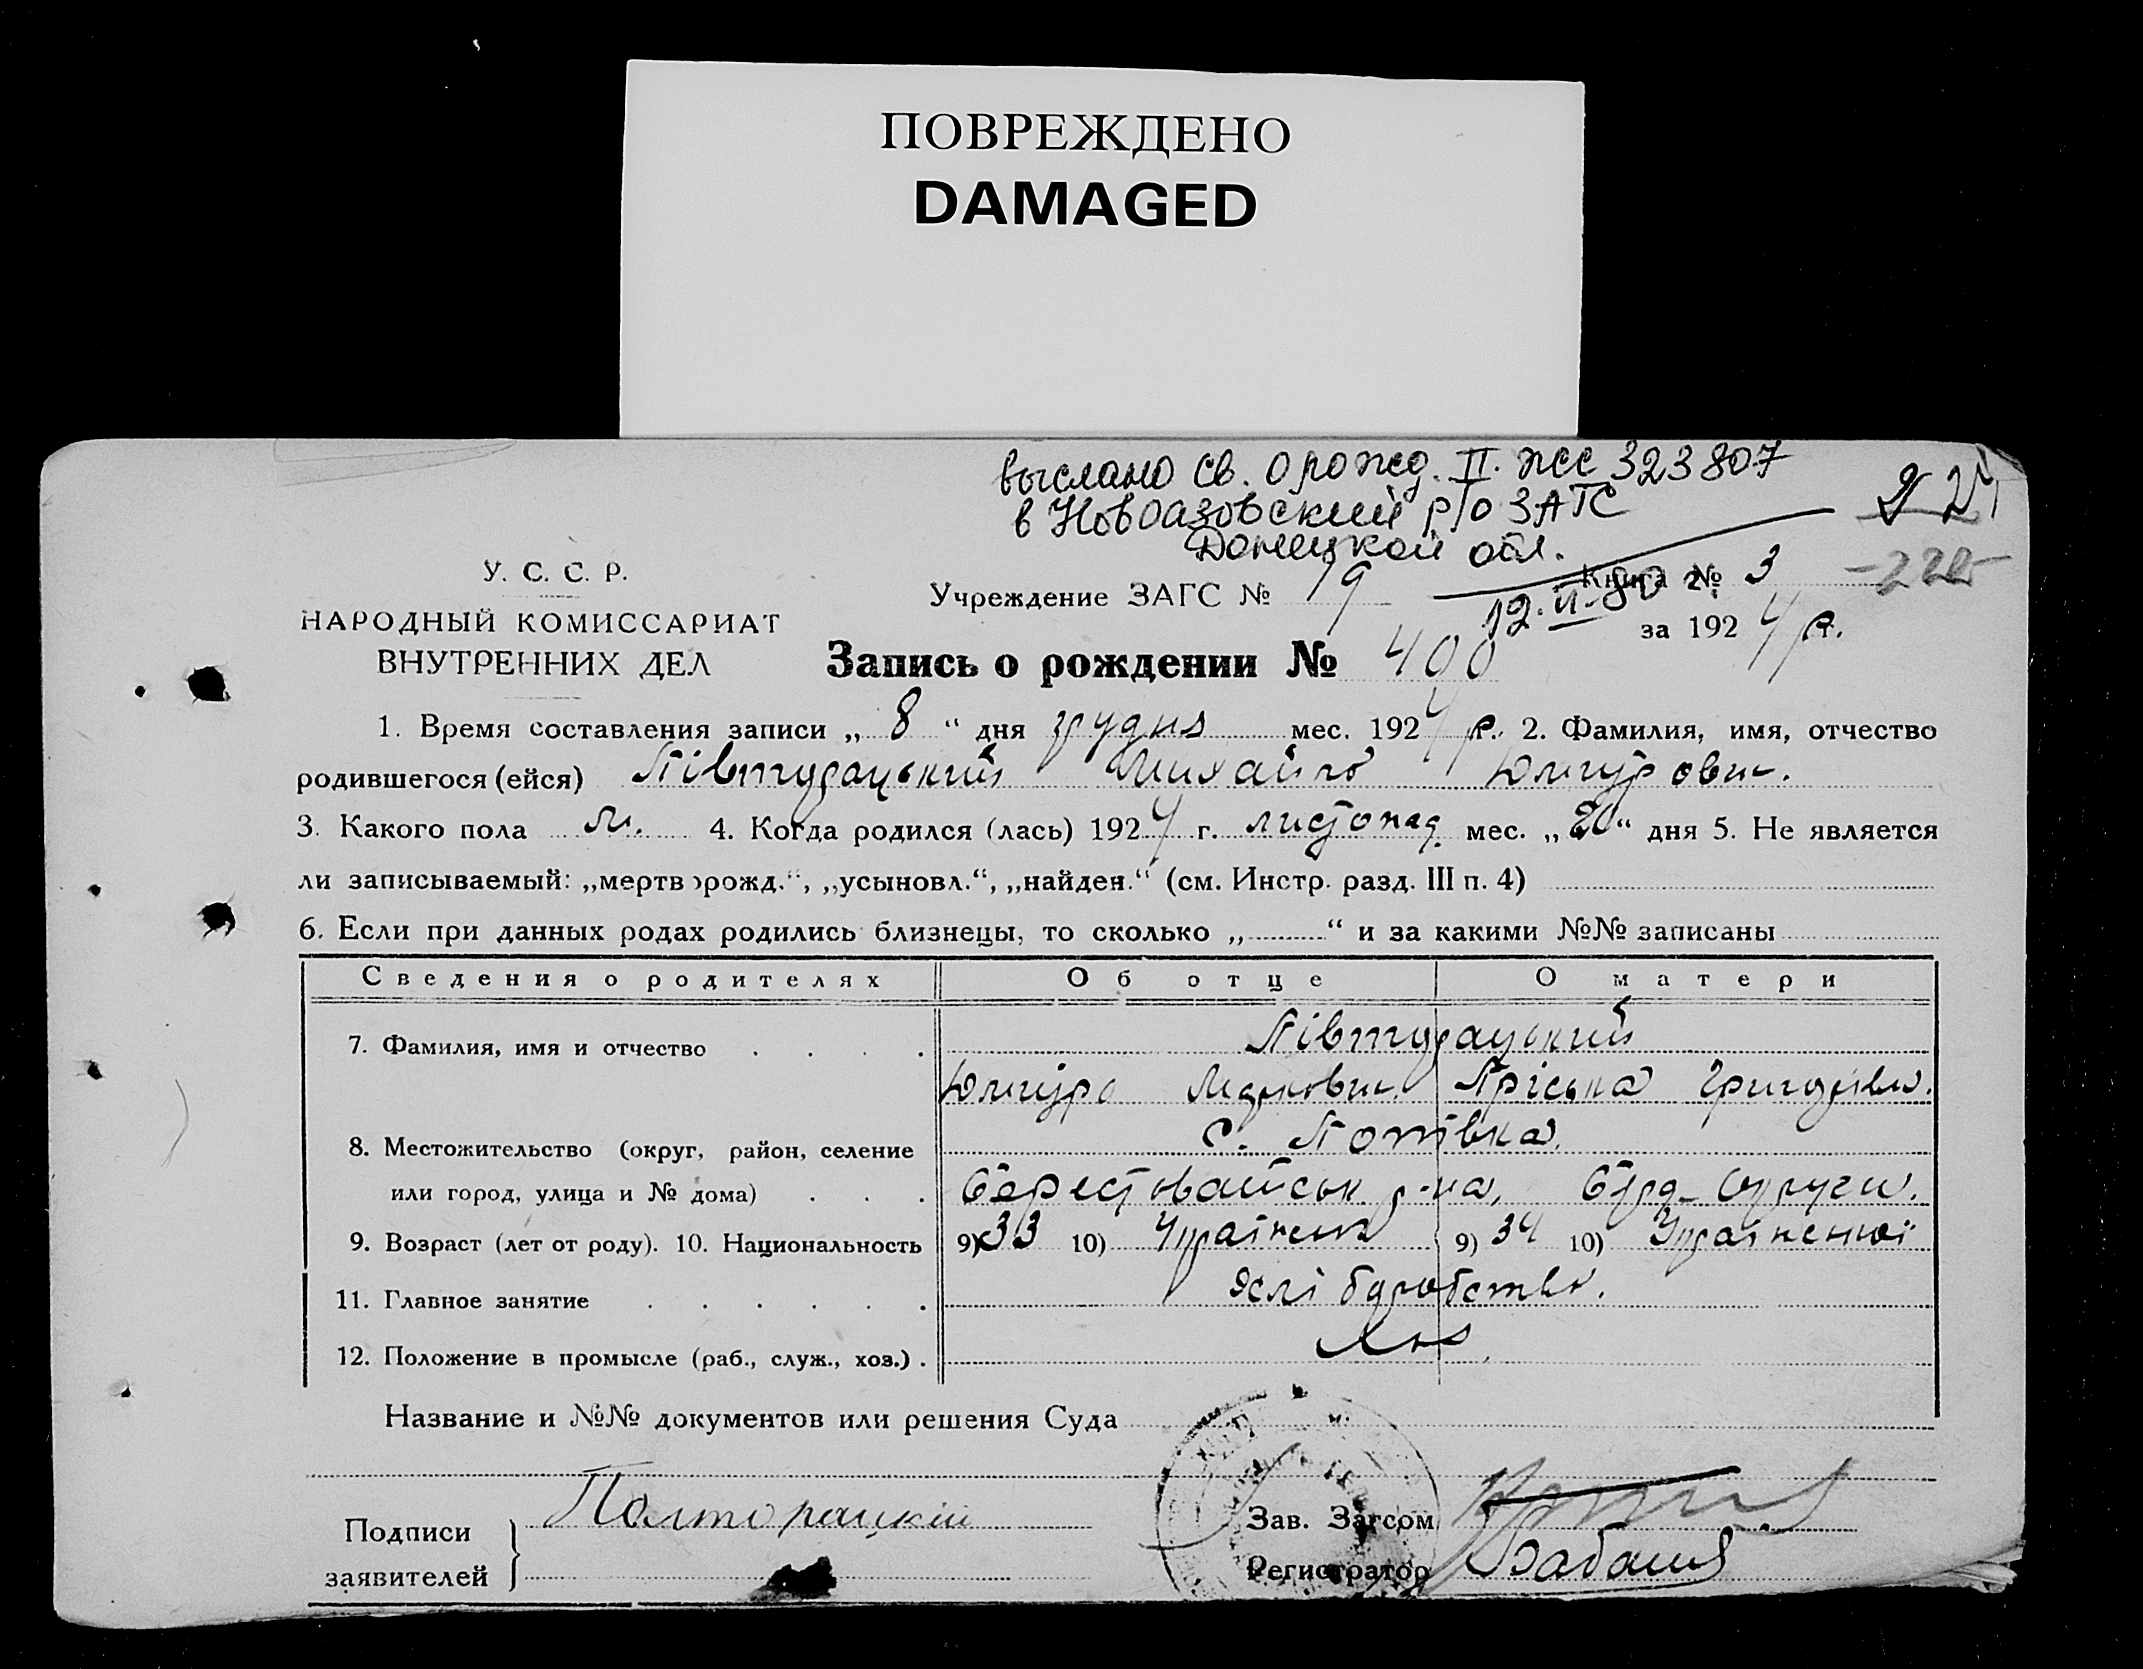 ПОВРЕЖДЕНО
DAMAGED
выслано св. о рожд. II. ЖС 323807
в Новоазовский р/о ЗАГС
Донецкой обл.
У. С. С. Р.
НАРОДНЫЙ КОМИССАРИАТ
ВНУТРЕННИХ ДЕЛ
Учреждение ЗАГС № 19
12.II-80 г.
Книга № 3
за 1924 р.
Запись о рождении № 400
1. Время составления записи „ 8 “ дня грудня мес. 1924 р. 2. Фамилия, имя, отчество
родившегося (ейся) Півторацький Михайло
3. Какого пола м. 4. Когда родился (лась) 1924 г. листопад. мес. „20“ дня 5. Не является
ли записываемый: „мертворожд.“, „усыновл.“, „найден.“ (см. Инстр. разд. III п. 4)
6. Если при данных родах родились близнецы, то сколько „ “ и за какими №№ записаны
Сведения о родителях Об отце О матери
7. Фамилия, имя и отчество . . . . Півторацький
Маркович. Пріська Григорівн.
8. Местожительство (округ, район, селение
с. Попівка,
или город, улица и № дома) . . . Берестовайськ. р-на, Бård. Округи.
9. Возраст (лет от роду). 10. Национальность 9) 33 10) Українец 9) 34 10)
11. Главное занятие . . . . . . хліборобство.
12. Положение в промысле (раб., служ., хоз.) .
Название и №№ документов или решения Суда
Подписи
заявителей
Полторацкий
Зав. Загсом
Регистратор